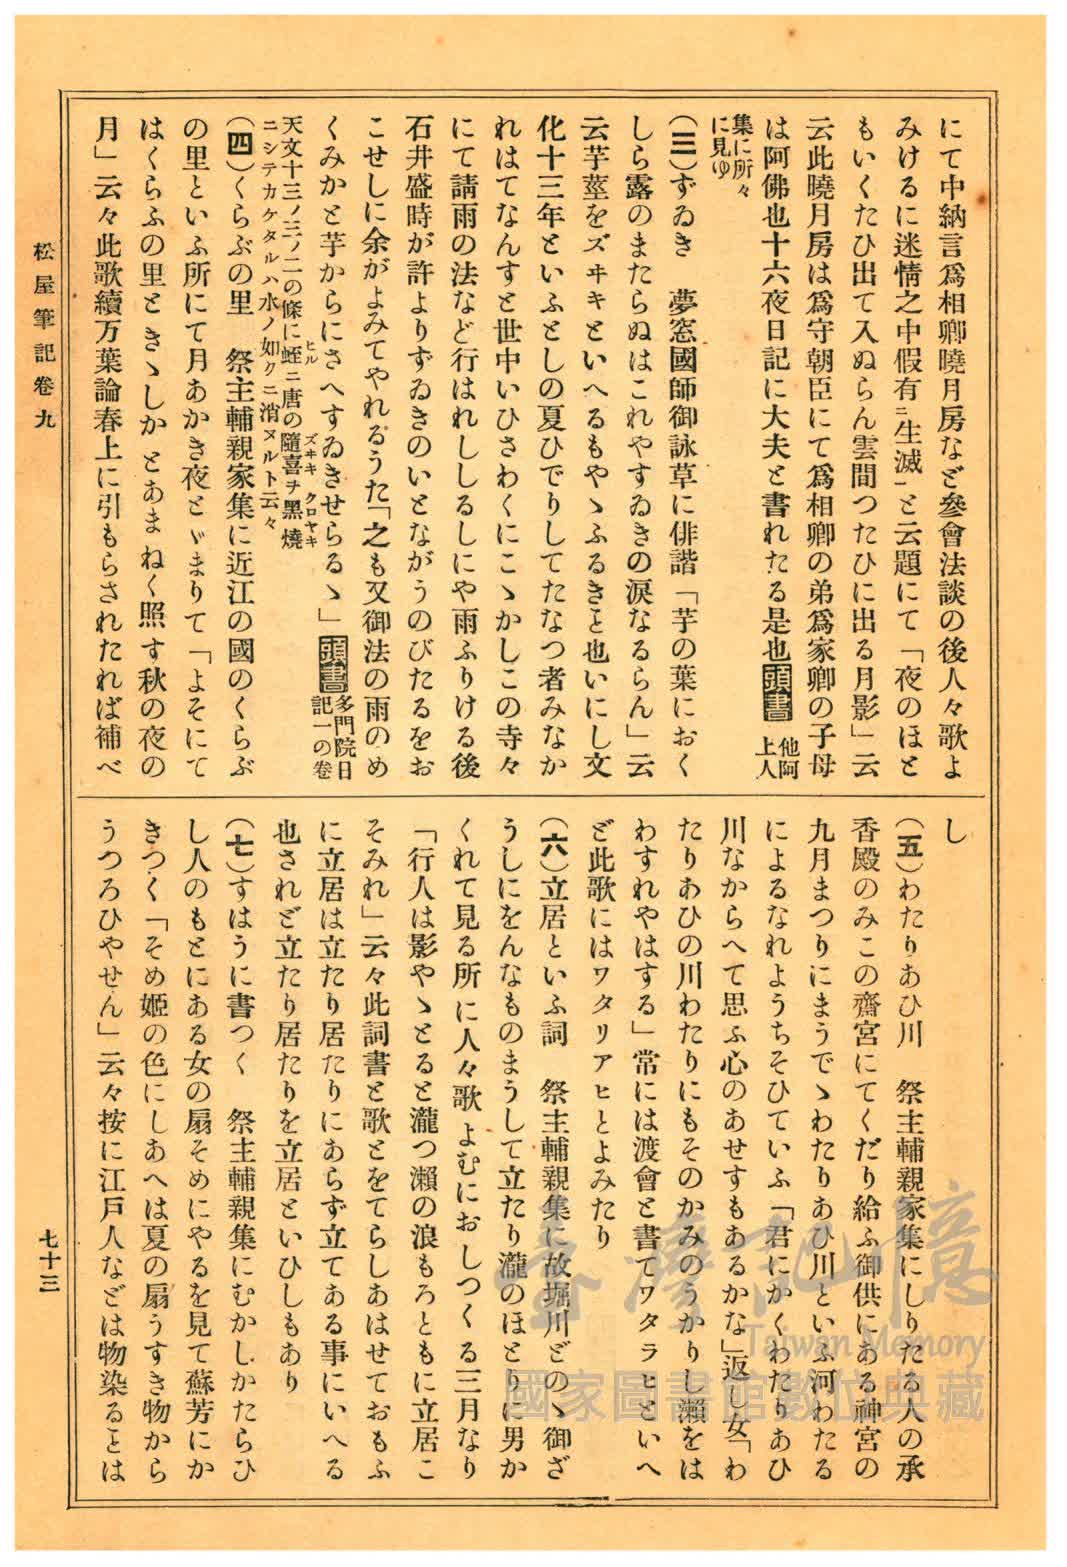 にて中納言爲相卿曉月房など參會法談の後人々歌よ
みけるに迷情之中假有ニ生滅一と云題にて「夜のほと
もいくたひ出て入ぬらん雲間つたひに出る月影」云
云此曉月房は爲守朝臣にて爲相卿の弟爲家卿の子母
は阿佛也十六夜日記に大夫と書れたる是也頭書他阿
上人
集に所々
に見ゆ
(三)ずゐき　夢窓國師御詠草に俳諧「芋の葉におく
しら露のまたらぬはこれやすゐきの涙なるらん」云
云芋莖をズヰキといへるもやゝふるきヿ也いにし文
化十三年といふとしの夏ひでりしてたなつ者みなか
れはてなんすと世中いひさわくにこゝかしこの寺々
にて請雨の法など行はれししるしにや雨ふりける後
石井盛時が許よりずゐきのいとながうのびたるをお
こせしに余がよみてやれるうた「之も又御法の雨のめ
くみかと芋からにさへすゐきせらるゝ」頭書多門院日
記一の卷
天文十三ノ三ノ二の條に蛭ヒルニ唐の隨喜ズヰキヲ黑燒クロヤキ
ニシテカケタルハ水ノ如クニ消ヌルト云々
(四)くらぶの里　祭主輔親家集に近江の國のくらぶ
の里といふ所にて月あかき夜とゞまりて「よそにて
はくらふの里ときゝしかとあまねく照す秋の夜の
月」云々此歌續万葉論春上に引もらされたれば補べ
し
(五)わたりあひ川　祭主輔親家集にしりたる人の承
香殿のみこの齋宮にてくだり給ふ御供にある神宮の
九月まつりにまうでゝわたりあひ川といふ河わたる
によるなれようちそひていふ「君にかくわたりあひ
川なからへて思ふ心のあせすもあるかな」返し女「わ
たりあひの川わたりにもそのかみのうかりし瀬をは
わすれやはする」常には渡會と書てワタラヒといへ
ど此歌にはワタリアヒとよみたり
(六)立居といふ詞　祭主輔親集に故堀川どのゝ御ざ
うしにをんなものまうして立たり瀧のほとりに男か
くれて見る所に人々歌よむにおしつくる三月なり
「行人は影やゝとると瀧つ瀬の浪もろともに立居こ
そみれ」云々此詞書と歌とをてらしあはせておもふ
に立居は立たり居たりにあらず立てある事にいへる
也されど立たり居たりを立居といひしもあり
(七)すはうに書つく　祭主輔親集にむかしかたらひ
し人のもとにある女の扇そめにやるを見て蘇芳にか
きつく「そめ姬の色にしあへは夏の扇うすき物から
うつろひやせん」云々按に江戶人などは物染るヿは
松屋筆記卷九
七十三
臺灣記憶
Taiwan Memory
國家圖書館數位典藏